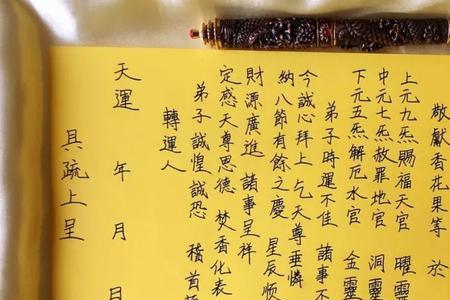 敬獻香花果等 於
上元九炁賜福天官 曜靈
中元七炁赦罪地官 洞靈
下元五炁解厄水官 金靈
弟子時運不佳 諸事不
今誠心拜上 乞天尊垂憐
納八節有餘之慶 星辰順
財源廣進 諸事呈祥
定感天尊恩德 焚香化表
弟子誠惶誠恐 稽首
轉運人
天運 年 月 日
具疏上呈